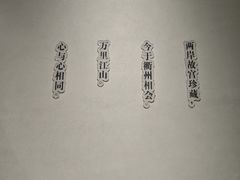 两岸故宫珍藏，
今于衢州相会。
万里江山，
心与心相同。